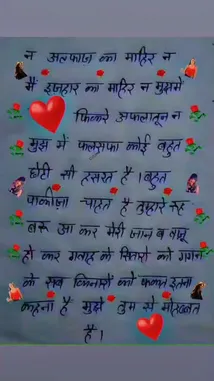 न अल्फाज का माहिर न
मैं इजहार का माहिर न मुझमे
फिकरे अफलातून न
मुझ में फलसफा कोई बहुत
छोटी सी हसरत है । बहुत
पाकीज़ा चाहत है तुम्हारे रू
बरू आ कर मेरी जान व वाजू
हो कर गवाह को सितारों को गगन
के सब किनारों को फकत इतना
कहना है मुझे तुम से मोहब्बत
है ।